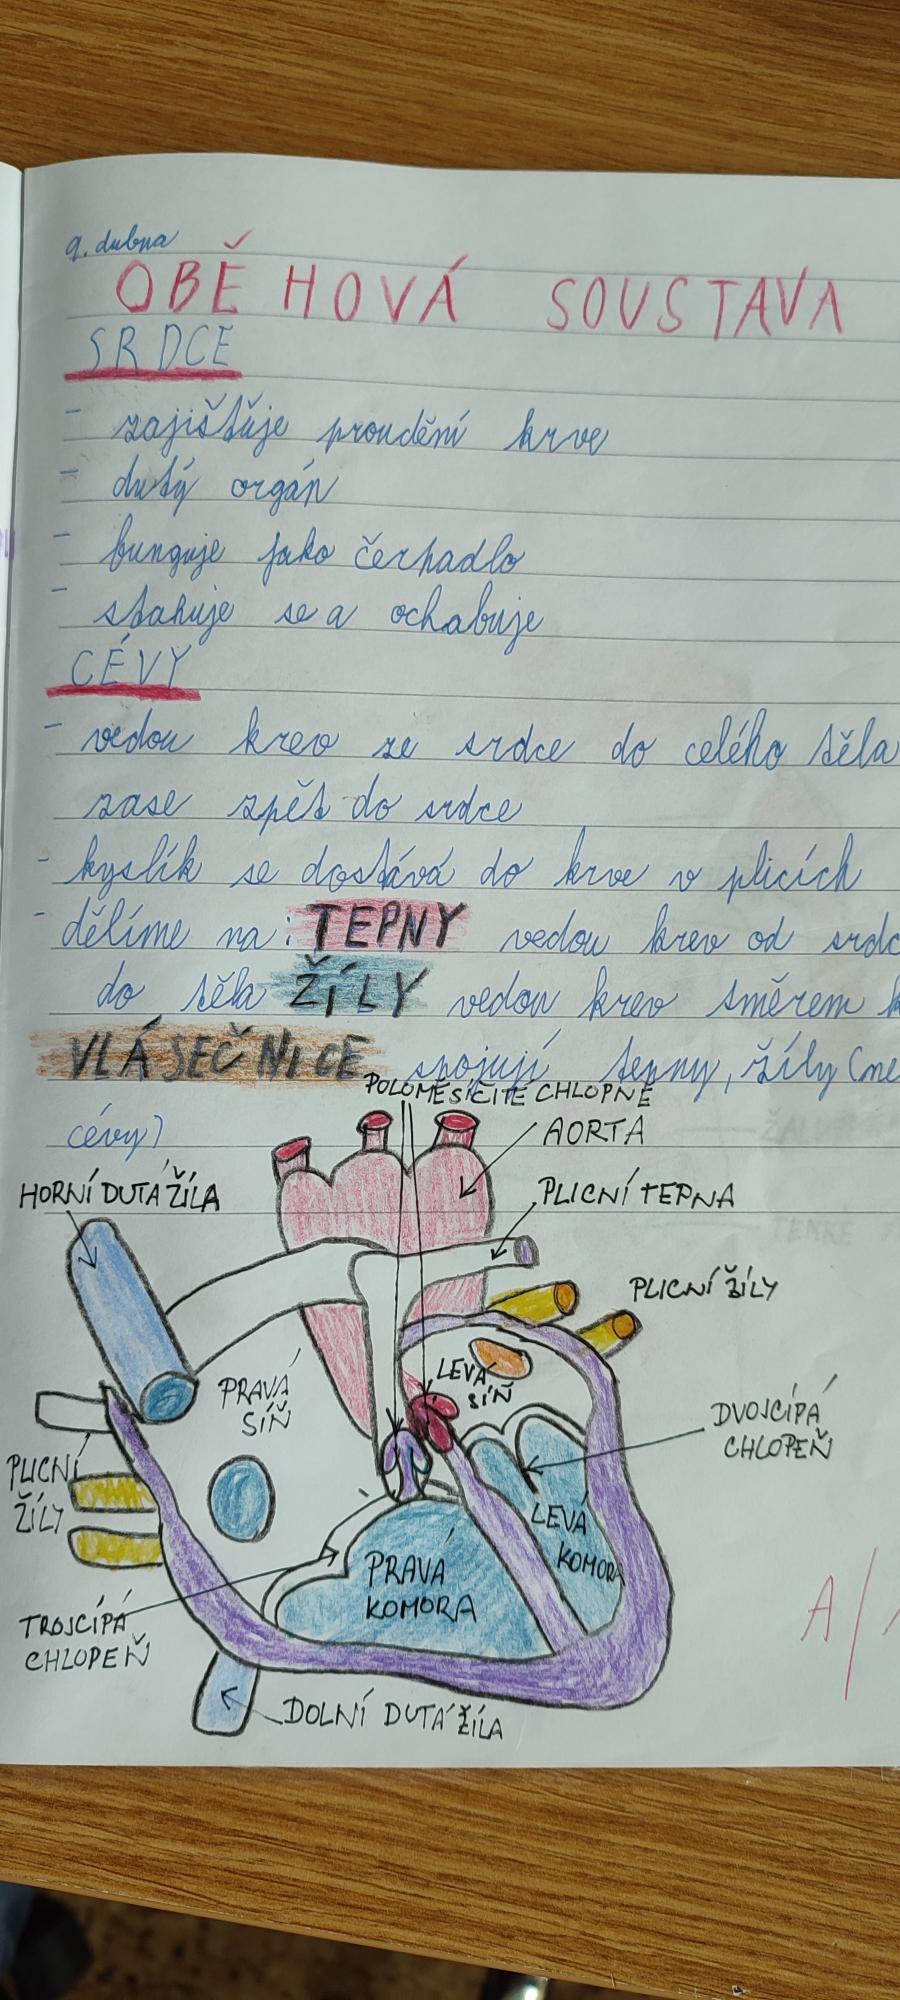 9. dubna
OBĚHOVÁ SOUSTAVA
SRDCE
- zajišťuje proudění krve
- dutý orgán
- funguje jako čerpadlo
- stahuje se a ochabuje
CÉVY
- vedou krev ze srdce do celého těla
zase zpět do srdce
- kyslík se dostává do krve v plicích
- dělíme na: TEPNY vedou krev od srdc
do těla ŽÍLY vedou krev směrem k
VLÁSEČNICE spojují tepny, žíly (ne
cévy)
POLOMĚSÍČITÉ CHLOPNĚ
AORTA
HORNÍ DUTÁ ŽÍLA
PLICNÍ TEPNA
PLICNÍ ŽÍLY
LEVÁ
SÍŇ
PRAVÁ
SÍŇ
DVOJCÍPÁ
CHLOPEŇ
PLICNÍ
ŽÍLY
LEVÁ
KOMORA
PRAVÁ
KOMORA
TROJCÍPÁ
CHLOPEŇ
DOLNÍ DUTÁ ŽÍLA
A/1